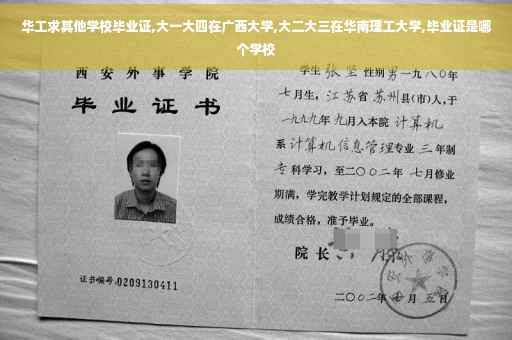 华工求其他学校毕业证,大一大四在广西大学,大二大三在华南理工大学,毕业证是哪
个学校
西安外事学院
毕业证书
证书编号:0209130411
学生 张坚 性别 男 一九八0年
七月生，江苏省 苏州县(市)人，于
一九九九年 九月入本院 计算机
系 计算机信息管理专业 三年制
专科学习，至二〇〇二年 七月修业
期满，学完教学计划规定的全部课程，
成绩合格，准予毕业。
院长
二〇〇二年 月 五日